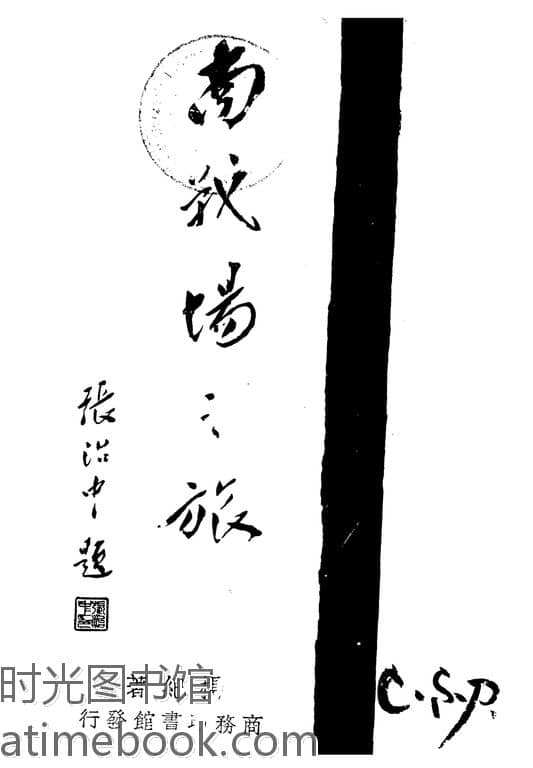 南戰場之旅
張治中題
紀著
商務印書館發行
C.S.P.
时光图书馆
atimebook.com